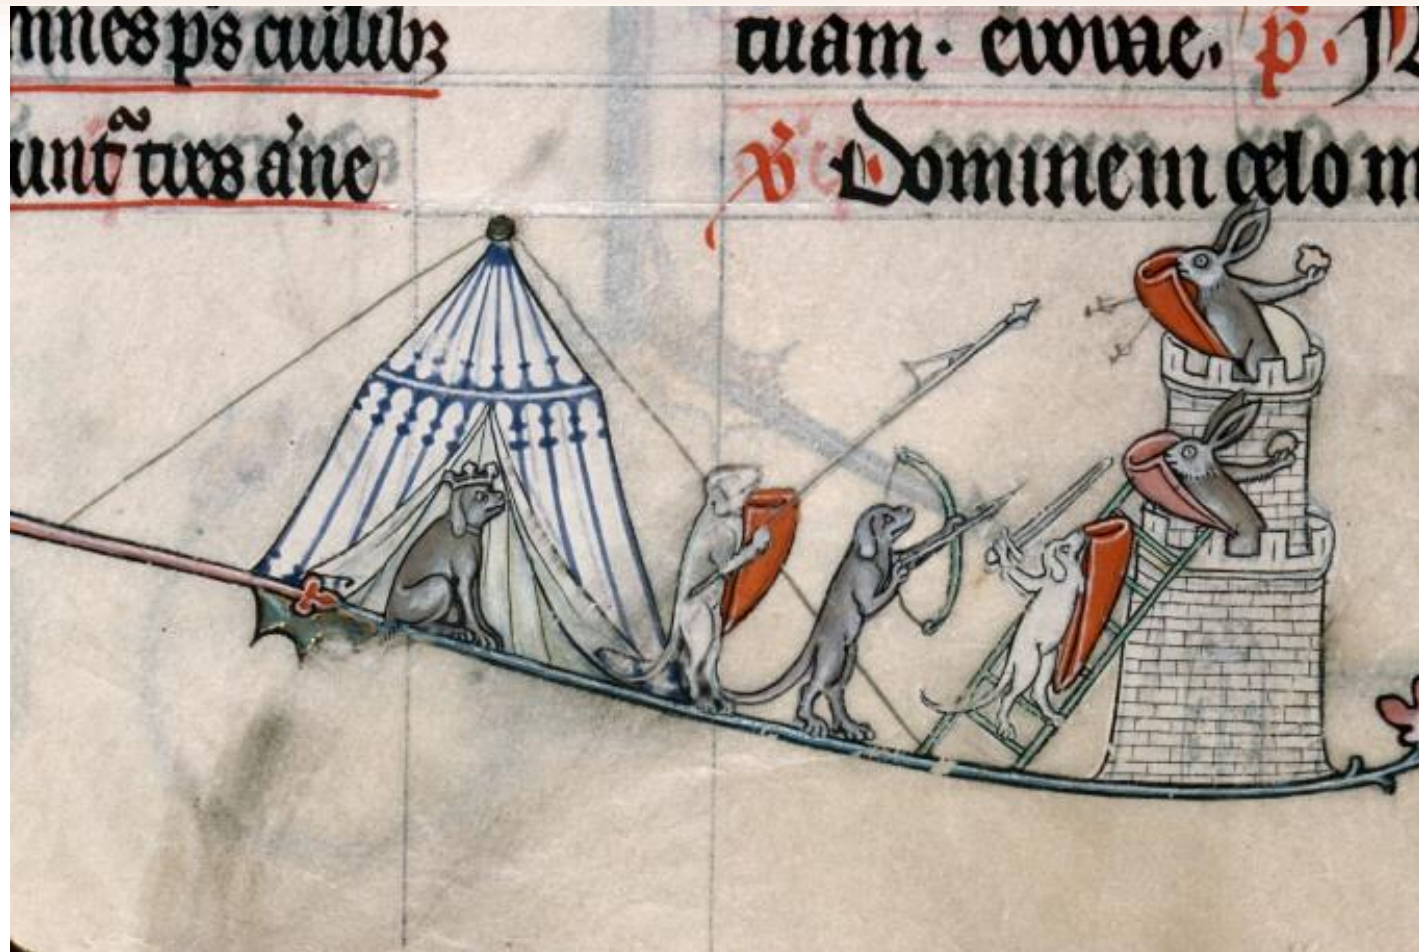 mnes ps cuilibꝫ
unt̃ tres a'ne
tuam · euouae. p̄.
Domine in celo m